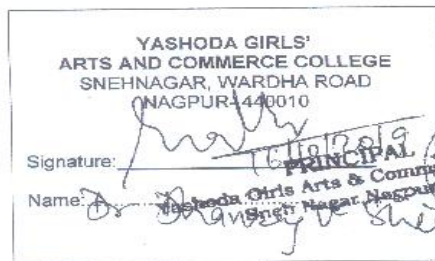 YASHODA GIRLS'
ARTS AND COMMERCE COLLEGE
SNEHNAGAR, WARDHA ROAD
NAGPUR-440010
Signature:
PRINCIPAL
Name: Dr
Yashoda Girls Arts & Comm
Sneh Nagar Nagpur